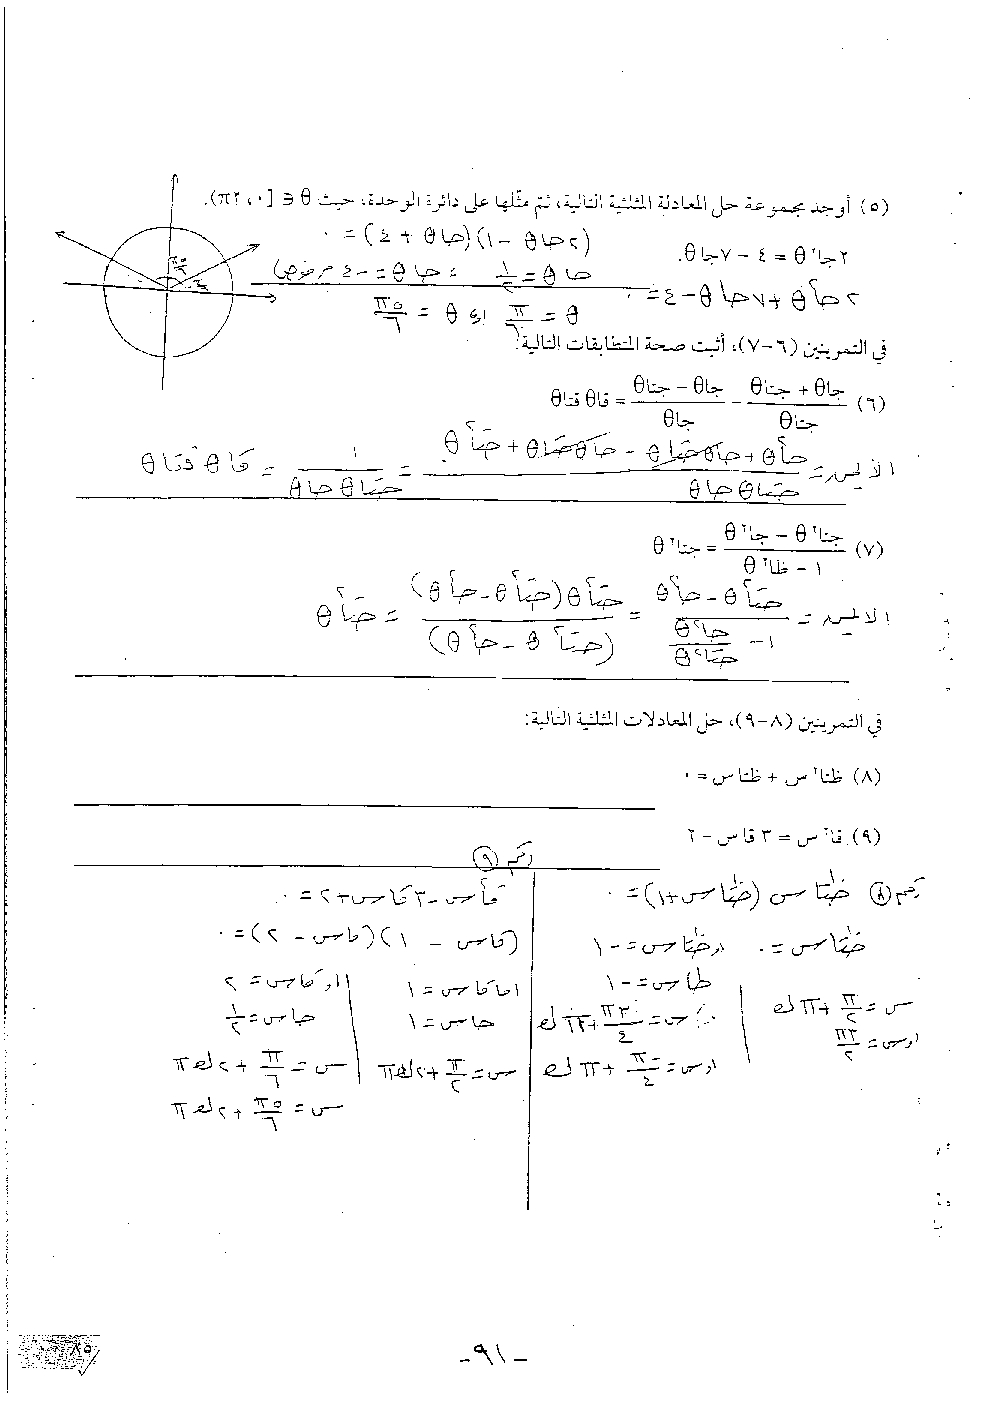 (٥) أوجد مجموعة حل المعادلة المثلثية التالية، ثم مثّلها على دائرة الوحدة، حيث θ ∈ [٠، ٢π).
٢جا²θ = ٤ − ٧جاθ.
(٢جاθ − ١)(جاθ + ٤) = ٠
٢جا²θ + ٧جاθ − ٤ = ٠
جاθ = ١/٢ ، جاθ = −٤ مرفوض)
θ = π/٦ او θ = ٥π/٦
في التمرينين (٦-٧)، أثبت صحة المتطابقات التالية:
(٦) (جاθ + جتاθ)/جتاθ − (جاθ − جتاθ)/جاθ = قاθ قتاθ
الأيمن = (جا²θ + جاθجتاθ − جاθجتاθ + جتا²θ)/(جتاθ جاθ) = ١/(جتاθ جاθ) = قاθ قتاθ
(٧) (جتا²θ − جا²θ)/(١ − ظا²θ) = جتا²θ
الأيمن = (جتا²θ − جا²θ)/(١ − جا²θ/جتا²θ) = جتا²θ(جتا²θ − جا²θ)/(جتا²θ − جا²θ) = جتا²θ
في التمرينين (٨-٩)، حل المعادلات المثلثية التالية:
(٨) ظتا²س + ظتاس = ٠
(٩) قا²س = ٣ قاس − ٢
رقم (٨) ظتاس (ظتاس+١) = ٠
ظتاس = ٠ اوظتاس = −١
ظاس = −١
س = π/٢ + πك
اوس = ٣π/٢
∴ س = ٣π/٤ + ٢πك
اوس = −π/٤ + πك
رقم (٩)
قا²س − ٣قاس + ٢ = ٠
(قاس − ١)(قاس − ٢) = ٠
اما قاس = ١ او قاس = ٢
جاس = ١ جاس = ١/٢
س = π/٢ + ٢كπ س = π/٦ + ٢كπ
س = ٥π/٦ + ٢كπ
-٩١-